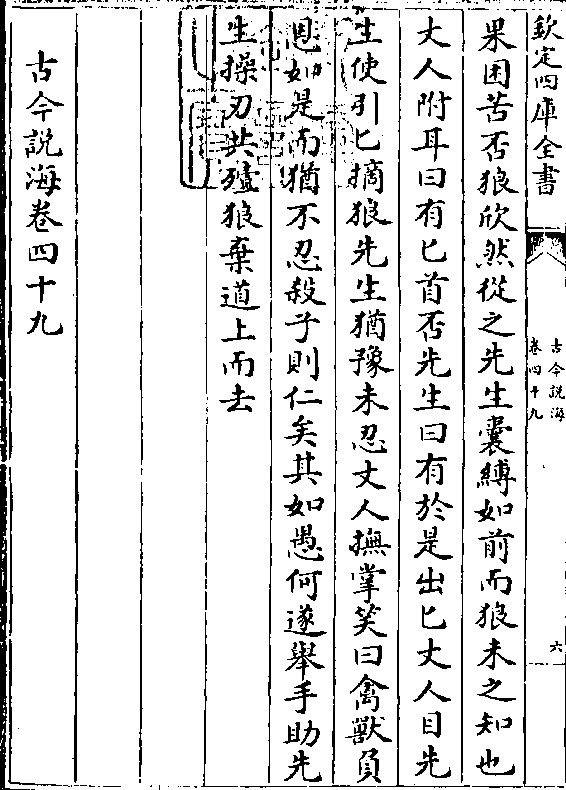 欽定四庫全書
古今説海
卷四十九
六
果困苦否狼欣然從之先生囊縛如前而狼未之知也
丈人附耳曰有匕首否先生曰有於是出匕丈人目先
生使引匕摘狼先生猶豫未忍丈人撫掌笑曰禽獸負
恩如是而猶不忍殺子則仁矣其如愚何遂舉手助先
生操刃共殪狼棄道上而去
古今説海卷四十九